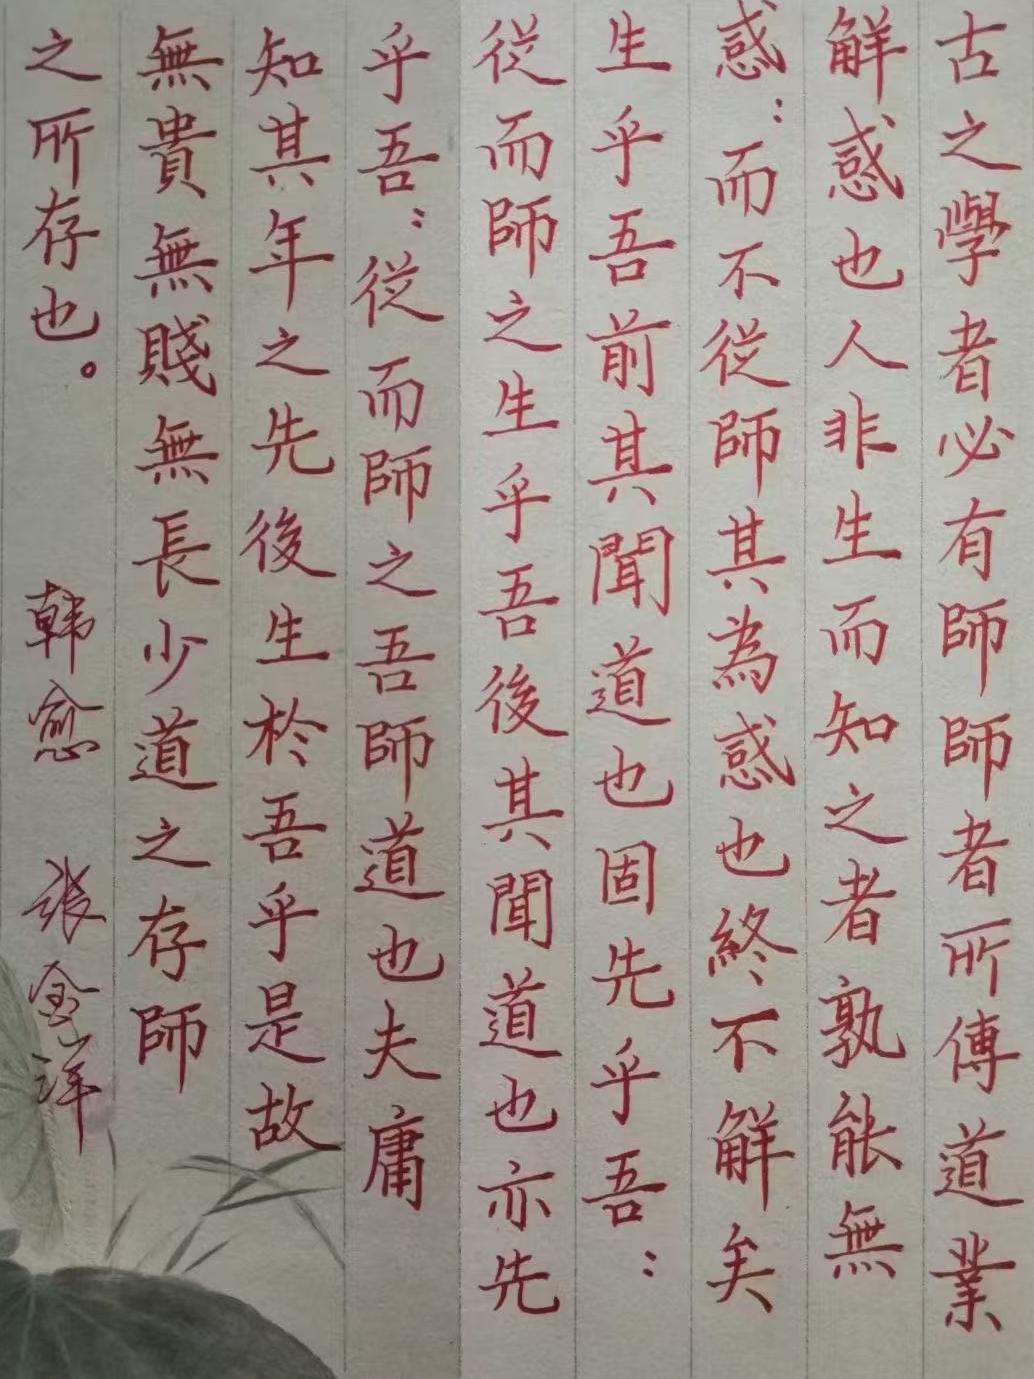 古之學者必有師師者所傳道業
解惑也人非生而知之者孰能無
惑：而不從師其為惑也終不解矣
生乎吾前其聞道也固先乎吾：
從而師之生乎吾後其聞道也亦先
乎吾：從而師之吾師道也夫庸
知其年之先後生於吾乎是故
無貴無賤無長少道之存師
之所存也。 韩愈 张金洋